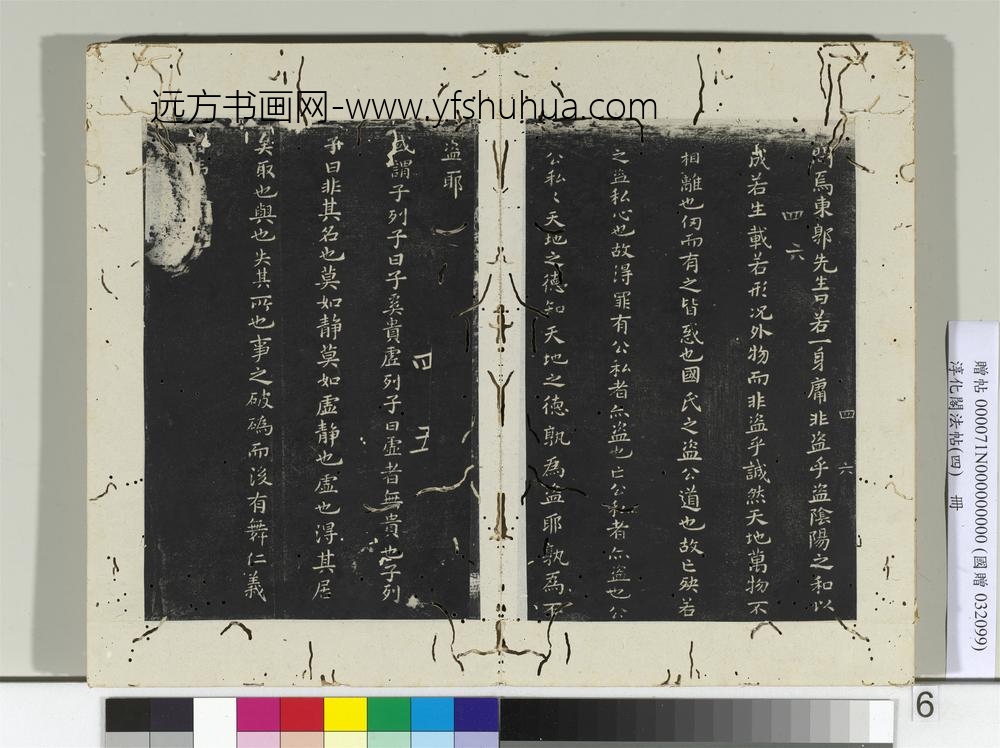 远方书画网-www.yfshuhua.com
問焉東郭先生曰若一身庸非盗乎盗陰陽之和以
成若生載若形况外物而非盗乎誠然天地萬物不
相離也仞而有之皆惑也國氏之盗公道也故亡殃若
之盗私心也故得罪有公私者亦盗也亡公私者亦盗也公
公私〻天地之德知天地之德孰為盗耶孰為不
四六
四六
盗耶
或謂子列子曰子奚貴虚列子曰虚者無貴也子列
子曰非其名也莫如静莫如虚静也虚也得其居
矣取也與也失其所也事之破䃣而後有舞仁義
四五
贈帖 000071N000000000 (國贈 032099)
淳化閣法帖(四) 冊
6